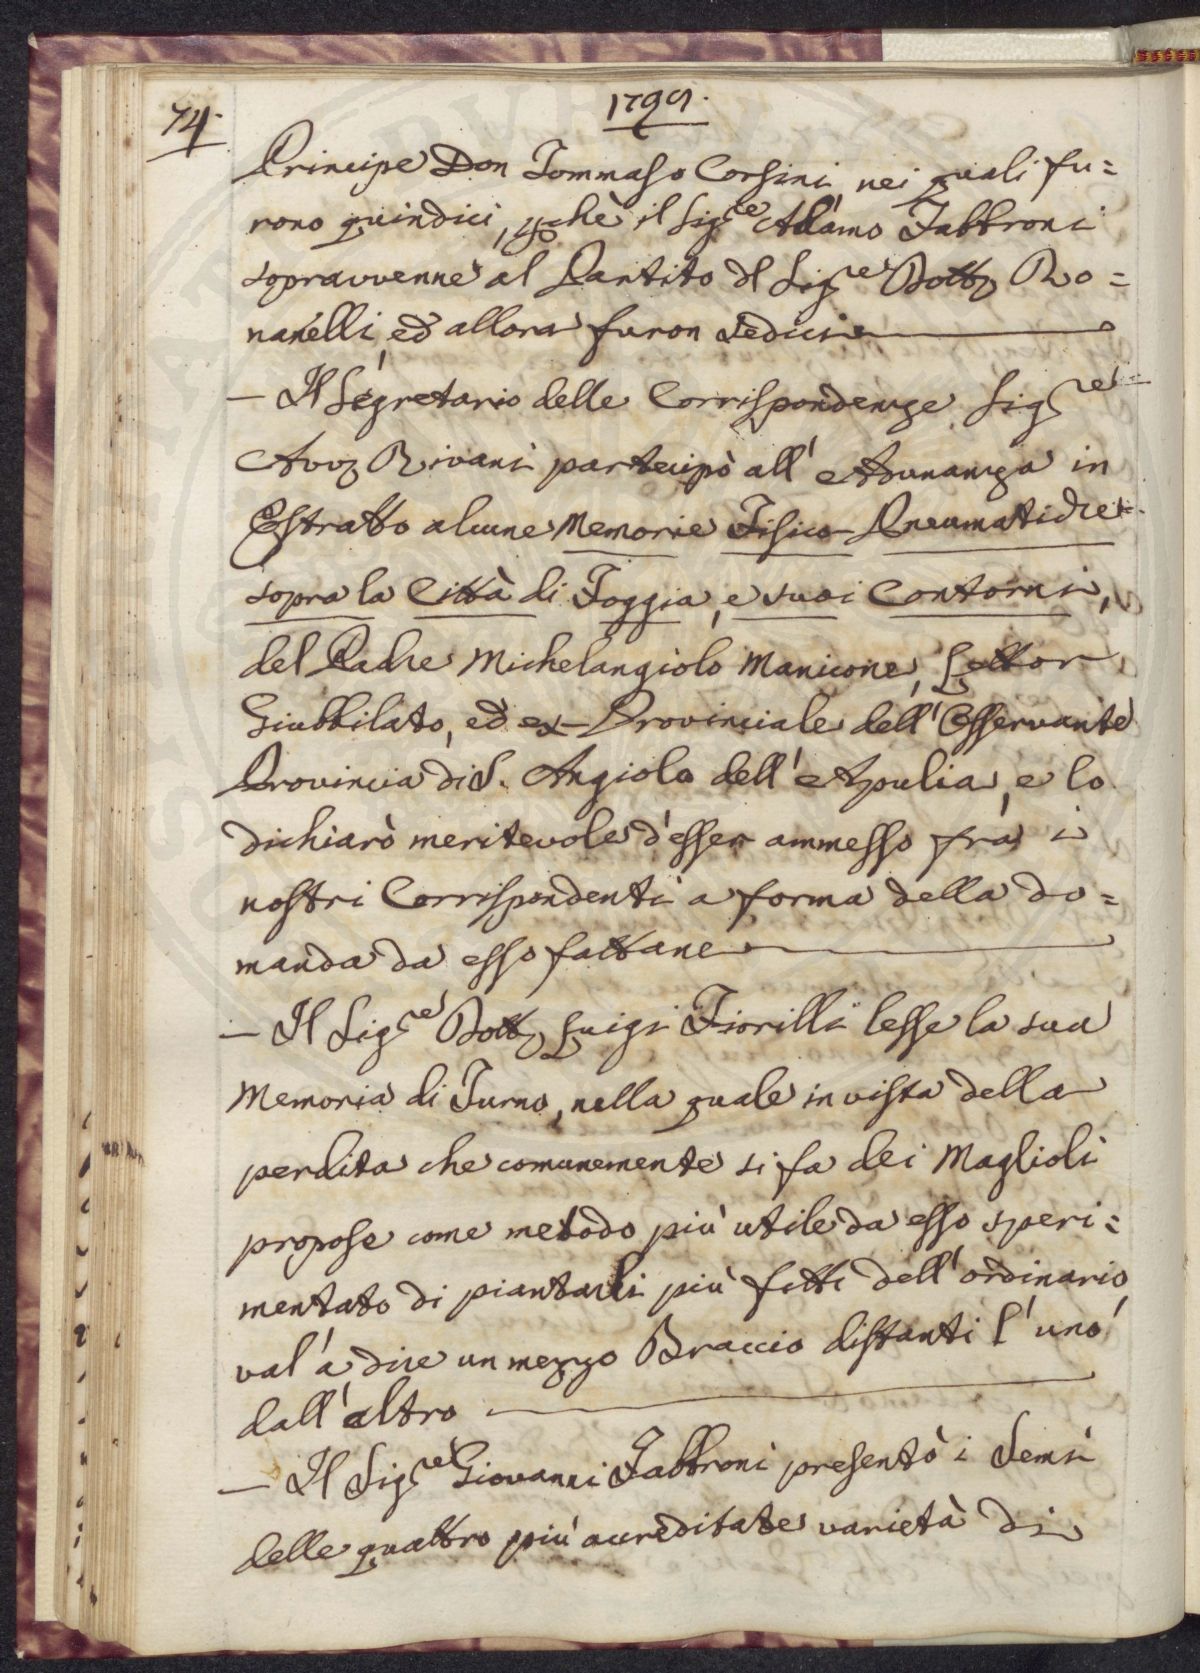 74.
1795.
Principe Don Tommaso Corsini nei quali fu=
rono quindici, pchè il Sig.re Adamo Fabbroni
sopravvenne al Partito dl Sig.re Dott.
nanelli, ed allora furon sedici
— Il Segretario delle Corrispondenze Sig.re
Avv. Rivani partecipò all' Adunanza in
Estratto alcune Memorie Fisico-Pneumatiche
sopra la Città di Foggia, e suoi Contorni,
del Padre Michelangiolo Manicone, Lettor
Giubbilato, ed ex-Provinciale dell' Osservante
Provincia di S. Angiolo dell' Apulia, e lo
dichiarò meritevole d'esser ammesso fra i
nostri Corrispondenti a forma della do=
manda da esso fattane
— Il Sig.re Dott. Luigi Fiorilli lesse la sua
Memoria di Turno, nella quale in vista della
perdita che comunemente si fa dei Maglioli
propose come metodo più utile da esso speri=
mentato di piantarli più fitti dell' ordinario,
val' a dire un mezzo Braccio distanti l' uno
dall' altro
— Il Sig.re Giovanni Fabbroni presentò i Semi
delle quattro più accreditate varietà di